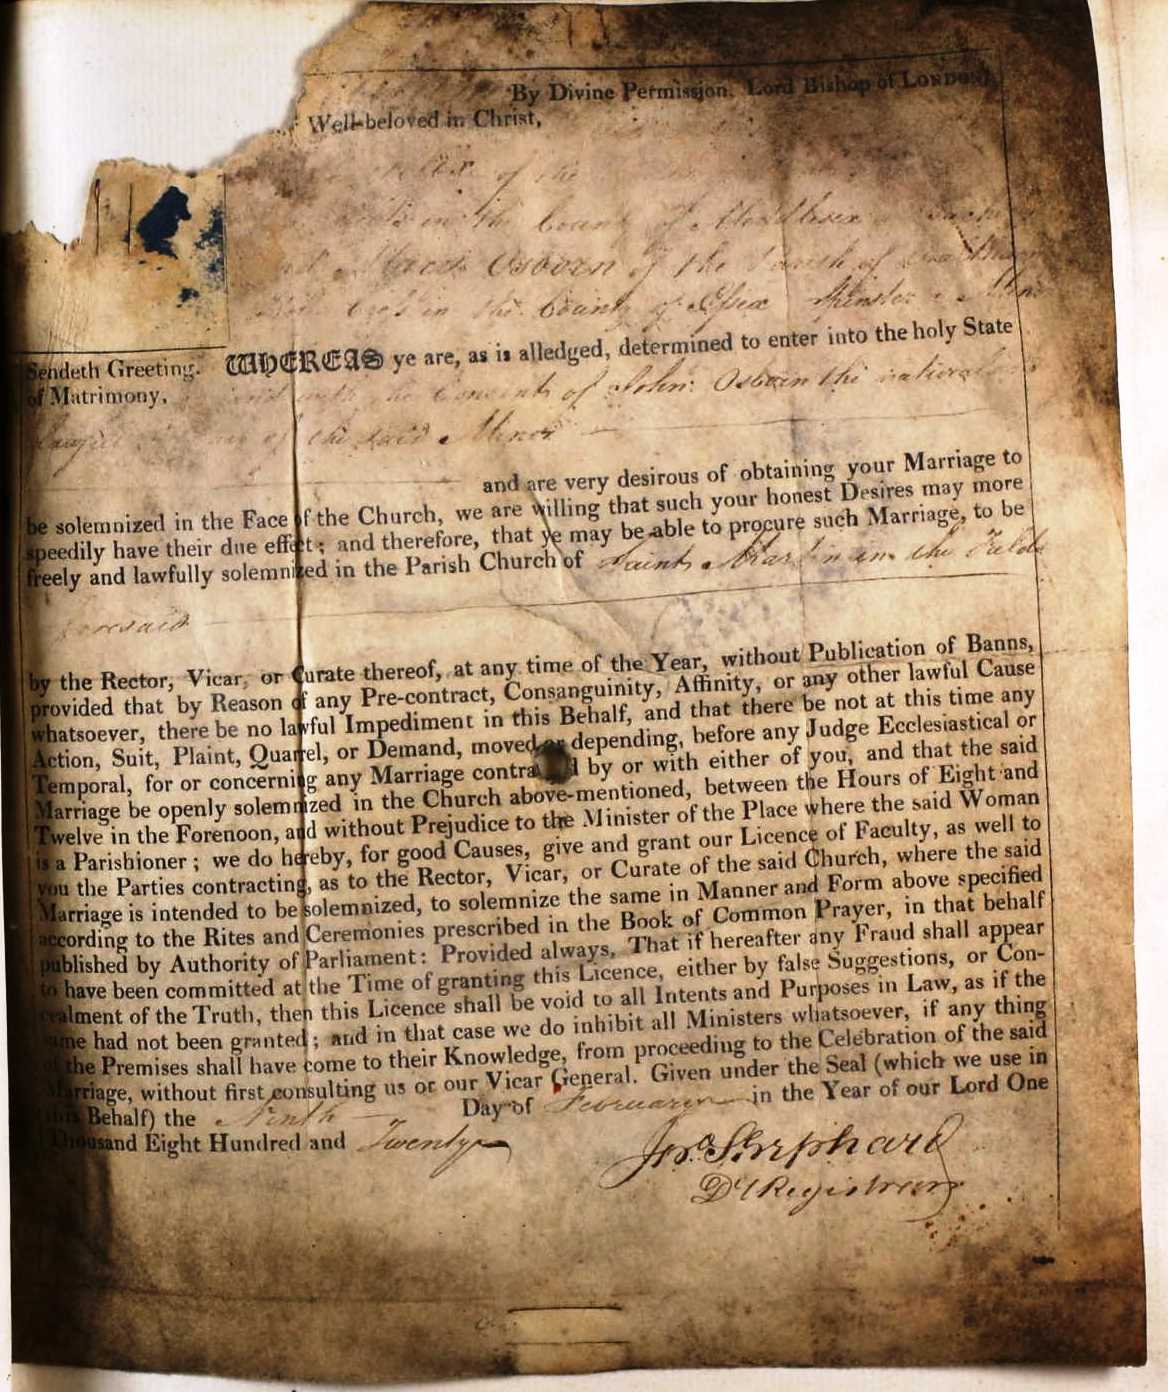 By Divine Permission, Lord Bishop of LONDON,
Well-beloved in Christ,
of the
in the County of Middlesex
Osborn of the Parish of
in the County of Essex Spinster a Minor
Sendeth Greeting. WHEREAS ye are, as is alledged, determined to enter into the holy State
of Matrimony, with the Consent of John Osborn the natural
of the said Minor
and are very desirous of obtaining your Marriage to
be solemnized in the Face of the Church, we are willing that such your honest Desires may more
speedily have their due effect; and therefore, that ye may be able to procure such Marriage, to be
freely and lawfully solemnized in the Parish Church of Saint Martin in the Fields
aforesaid
by the Rector, Vicar, or Curate thereof, at any time of the Year, without Publication of Banns,
provided that by Reason of any Pre-contract, Consanguinity, Affinity, or any other lawful Cause
whatsoever, there be no lawful Impediment in this Behalf, and that there be not at this time any
Action, Suit, Plaint, Quarrel, or Demand, moved or depending, before any Judge Ecclesiastical or
Temporal, for or concerning any Marriage contracted by or with either of you, and that the said
Marriage be openly solemnized in the Church above-mentioned, between the Hours of Eight and
Twelve in the Forenoon, and without Prejudice to the Minister of the Place where the said Woman
is a Parishioner; we do hereby, for good Causes, give and grant our Licence of Faculty, as well to
you the Parties contracting, as to the Rector, Vicar, or Curate of the said Church, where the said
Marriage is intended to be solemnized, to solemnize the same in Manner and Form above specified
according to the Rites and Ceremonies prescribed in the Book of Common Prayer, in that behalf
published by Authority of Parliament: Provided always, That if hereafter any Fraud shall appear
to have been committed at the Time of granting this Licence, either by false Suggestions, or Con-
cealment of the Truth, then this Licence shall be void to all Intents and Purposes in Law, as if the
same had not been granted; and in that case we do inhibit all Ministers whatsoever, if any thing
of the Premises shall have come to their Knowledge, from proceeding to the Celebration of the said
Marriage, without first consulting us or our Vicar General. Given under the Seal (which we use in
this Behalf) the Ninth Day of February in the Year of our Lord One
Thousand Eight Hundred and Twenty
Jno. Shephard
Dy Registrar